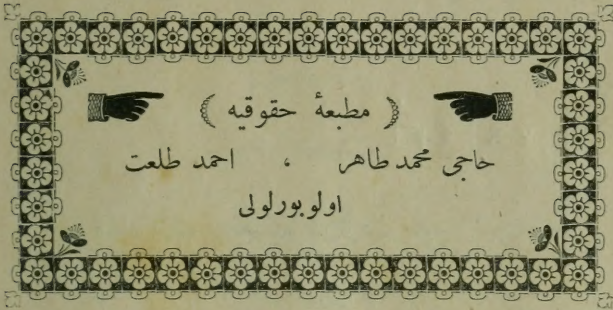 ( مطبعهٔ حقوقیه )
حاجی محمد طاهر ، احمد طلعت
اولوبورلولی